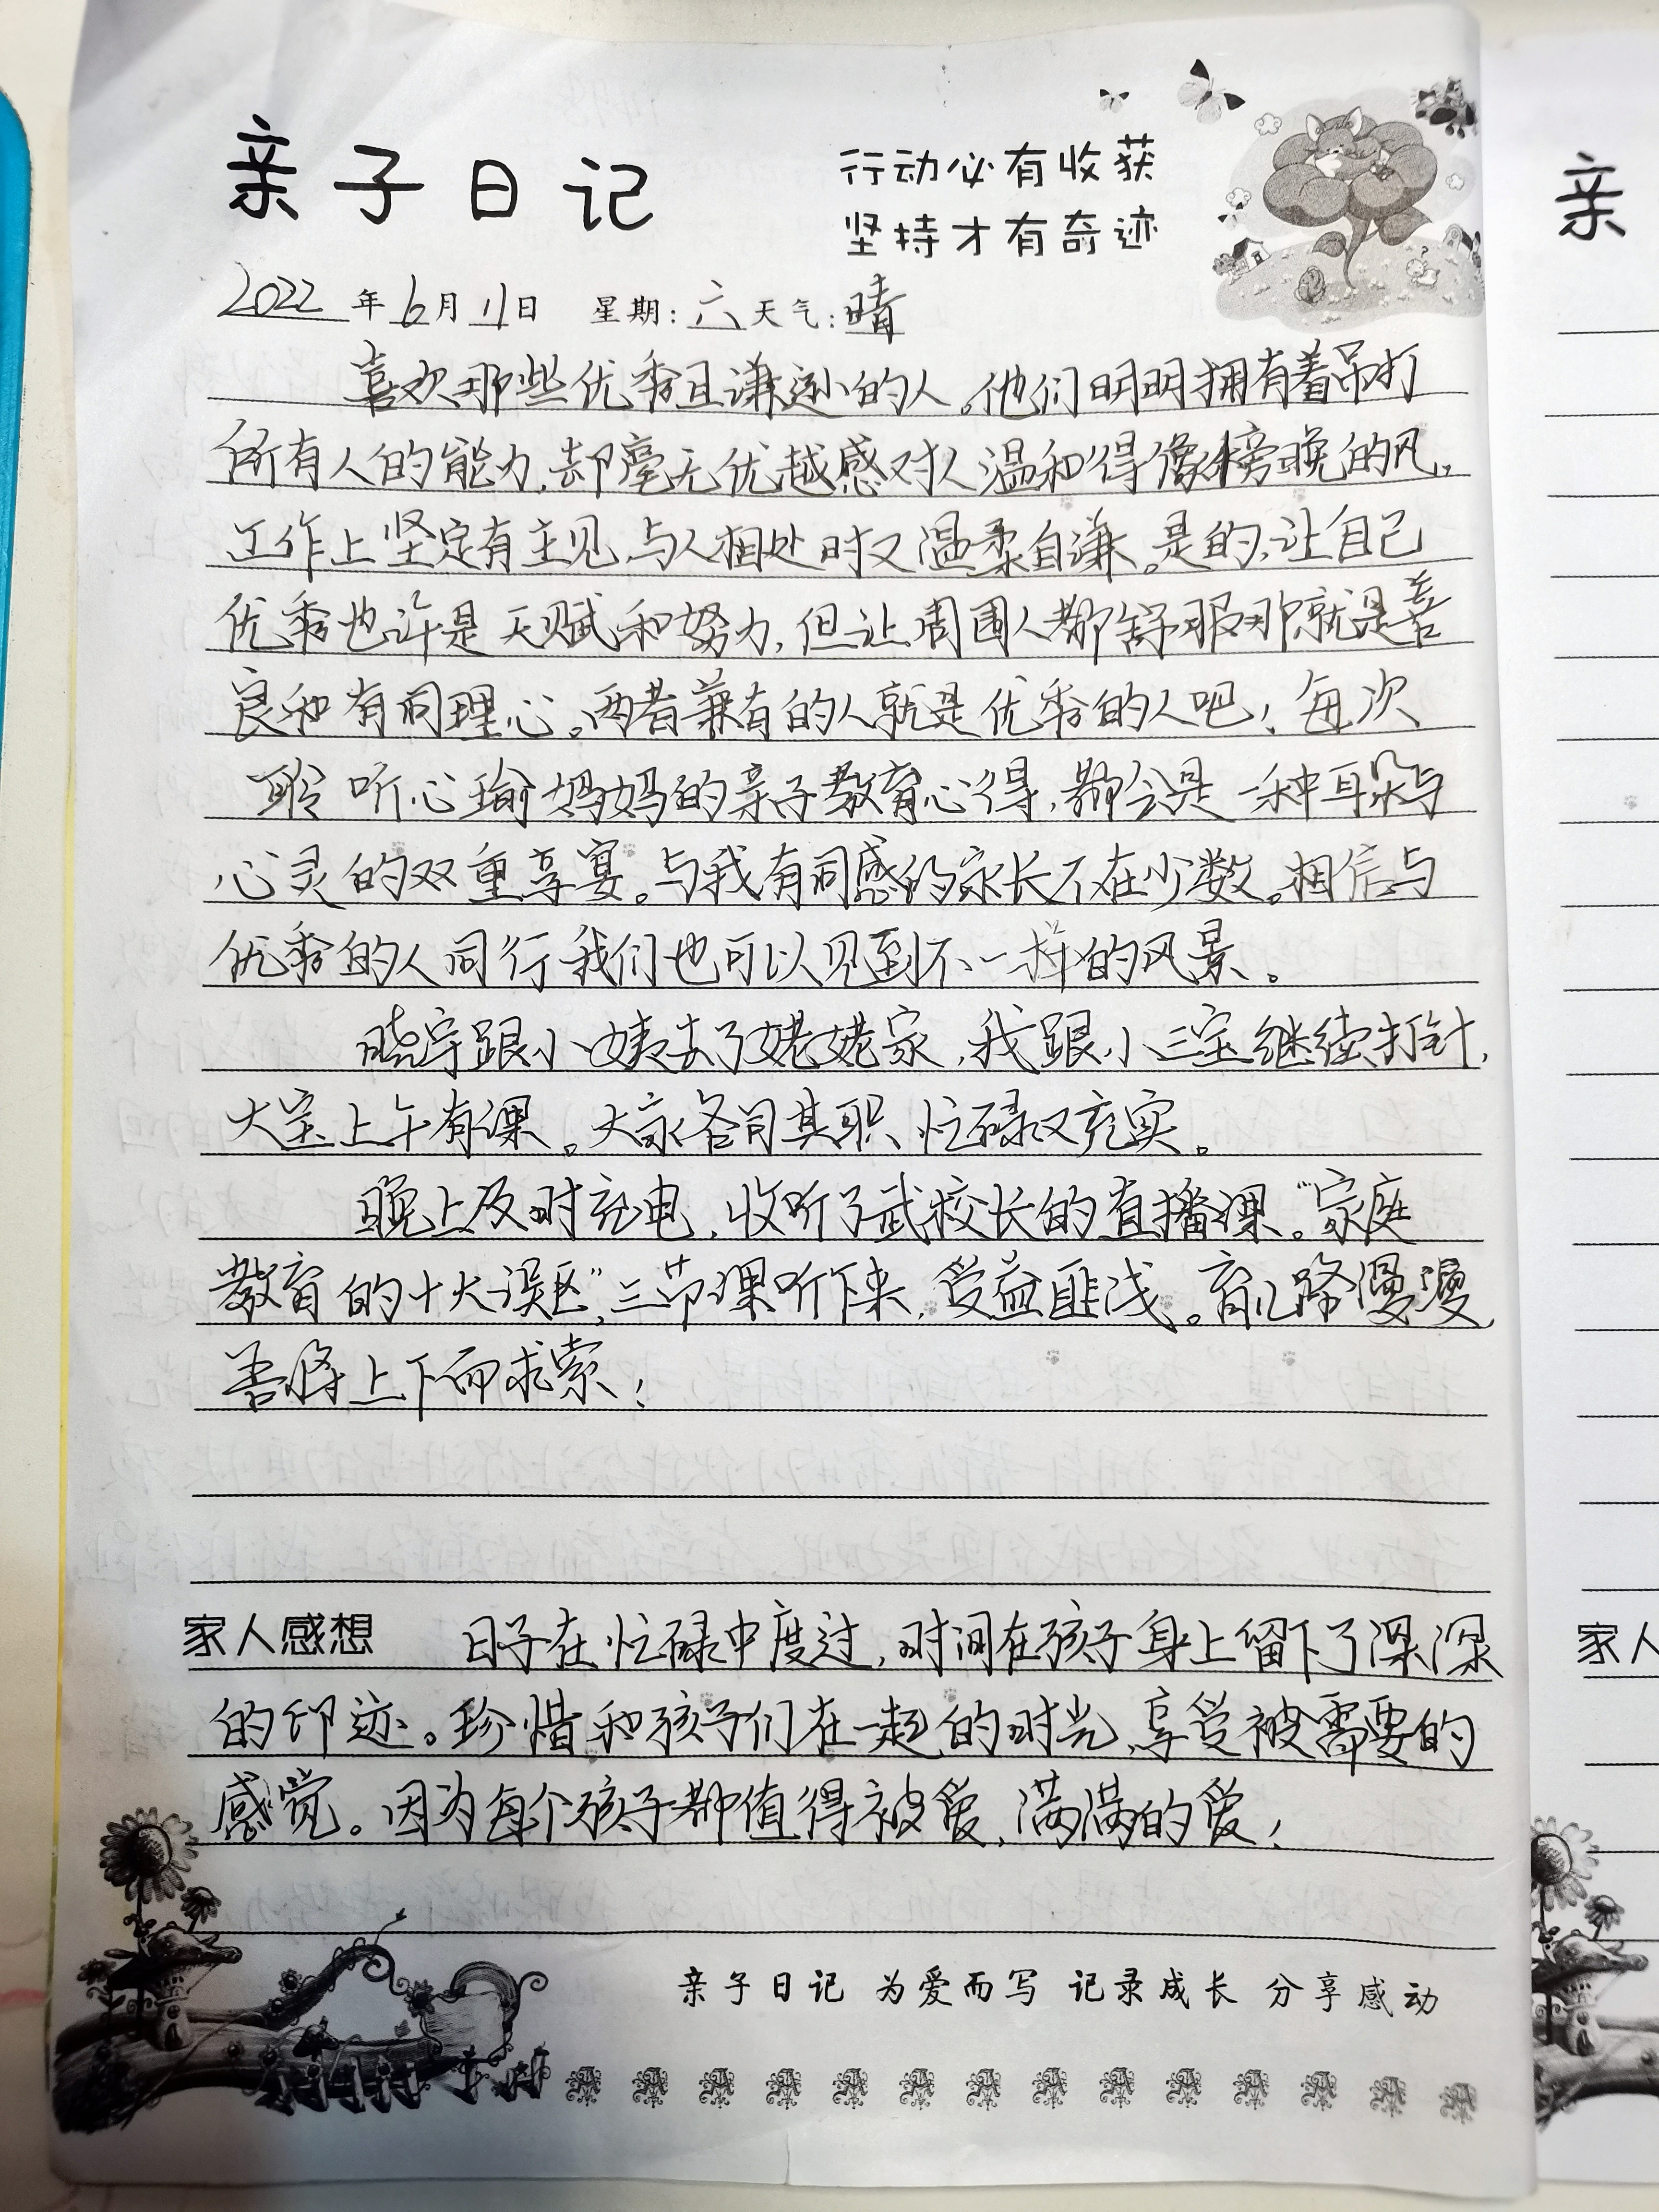 亲子日记
行动必有收获
坚持才有奇迹
2022年6月11日 星期:六 天气:晴
喜欢那些优秀且谦逊的人。他们明明拥有着吊打
所有人的能力,却毫无优越感对人温和得像傍晚的风。
工作上坚定有主见,与人相处时又温柔自谦。是的,让自己
优秀也许是天赋和努力,但让周围人都舒服那就是善
良和有同理心。两者兼有的人就是优秀的人吧!每次
聆听心瑜妈妈的亲子教育心得,都会是一种耳朵与
心灵的双重享宴。与我有同感的家长不在少数。相信与
优秀的人同行我们也可以见到不一样的风景。
晓宇跟小姨去了姥姥家,我跟小三宝继续打针,
大宝上午有课。大家各司其职,忙碌又充实。
晚上及时充电,收听了武校长的直播课。“家庭
教育的十大误区”,三节课听下来,受益匪浅。育儿路漫漫,
吾将上下而求索!
家人感想 日子在忙碌中度过,时间在孩子身上留下了深深
的印迹。珍惜和孩子们在一起的时光,享受被需要的
感觉。因为每个孩子都值得被爱,满满的爱!
亲子日记 为爱而写 记录成长 分享感动
亲
家人